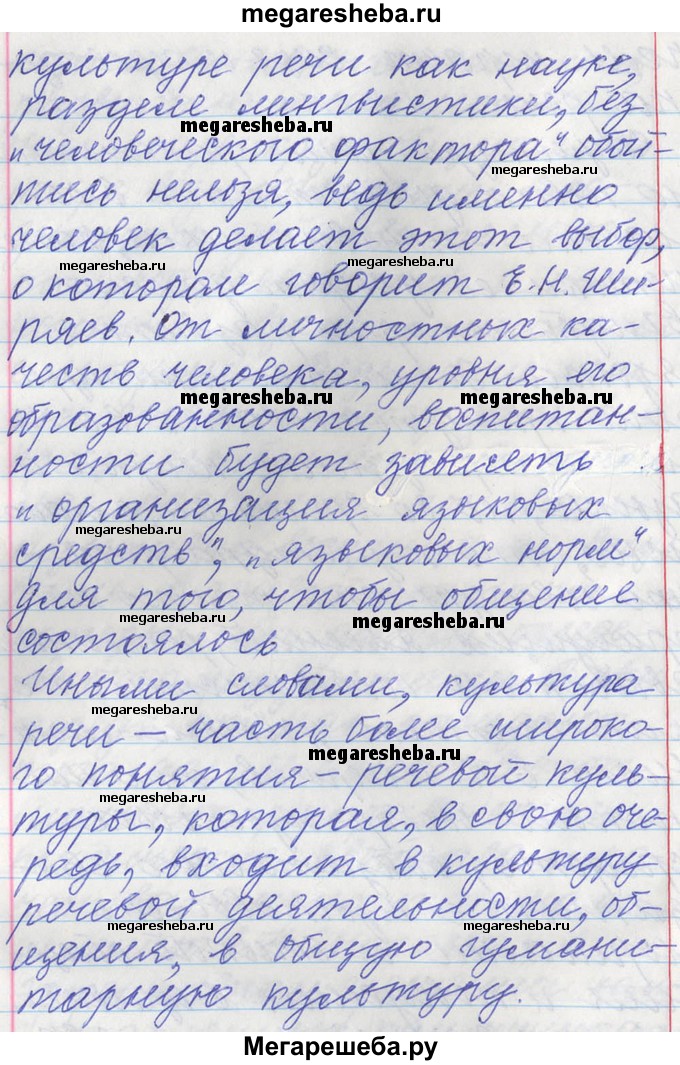 megaresheba.ru
культуре речи как науке,
разделе лингвистики, без
megaresheba.ru
„человеческого фактора“ обой-
megaresheba.ru
тись нельзя, ведь именно
человек делает этот выбор,
megaresheba.ru
megaresheba.ru
о котором говорит Е.Н. Ши-
ряев. От личностных ка-
честв человека, уровня его
megaresheba.ru
megaresheba.ru
образованности, воспитан-
ности будет зависеть
„организация языковых
megaresheba.ru
средств“, „языковых норм“
для того, чтобы общение
megaresheba.ru
megaresheba.ru
состоялось
Иными словами, культура
megaresheba.ru
речи — часть более широко-
megaresheba.ru
го понятия — речевой куль-
megaresheba.ru
туры, которая, в свою оче-
редь, входит в культуру
речевой деятельности, об-
megaresheba.ru
megaresheba.ru
щения, в общую гумани-
тарную культуру.
Мегарешеба.ру